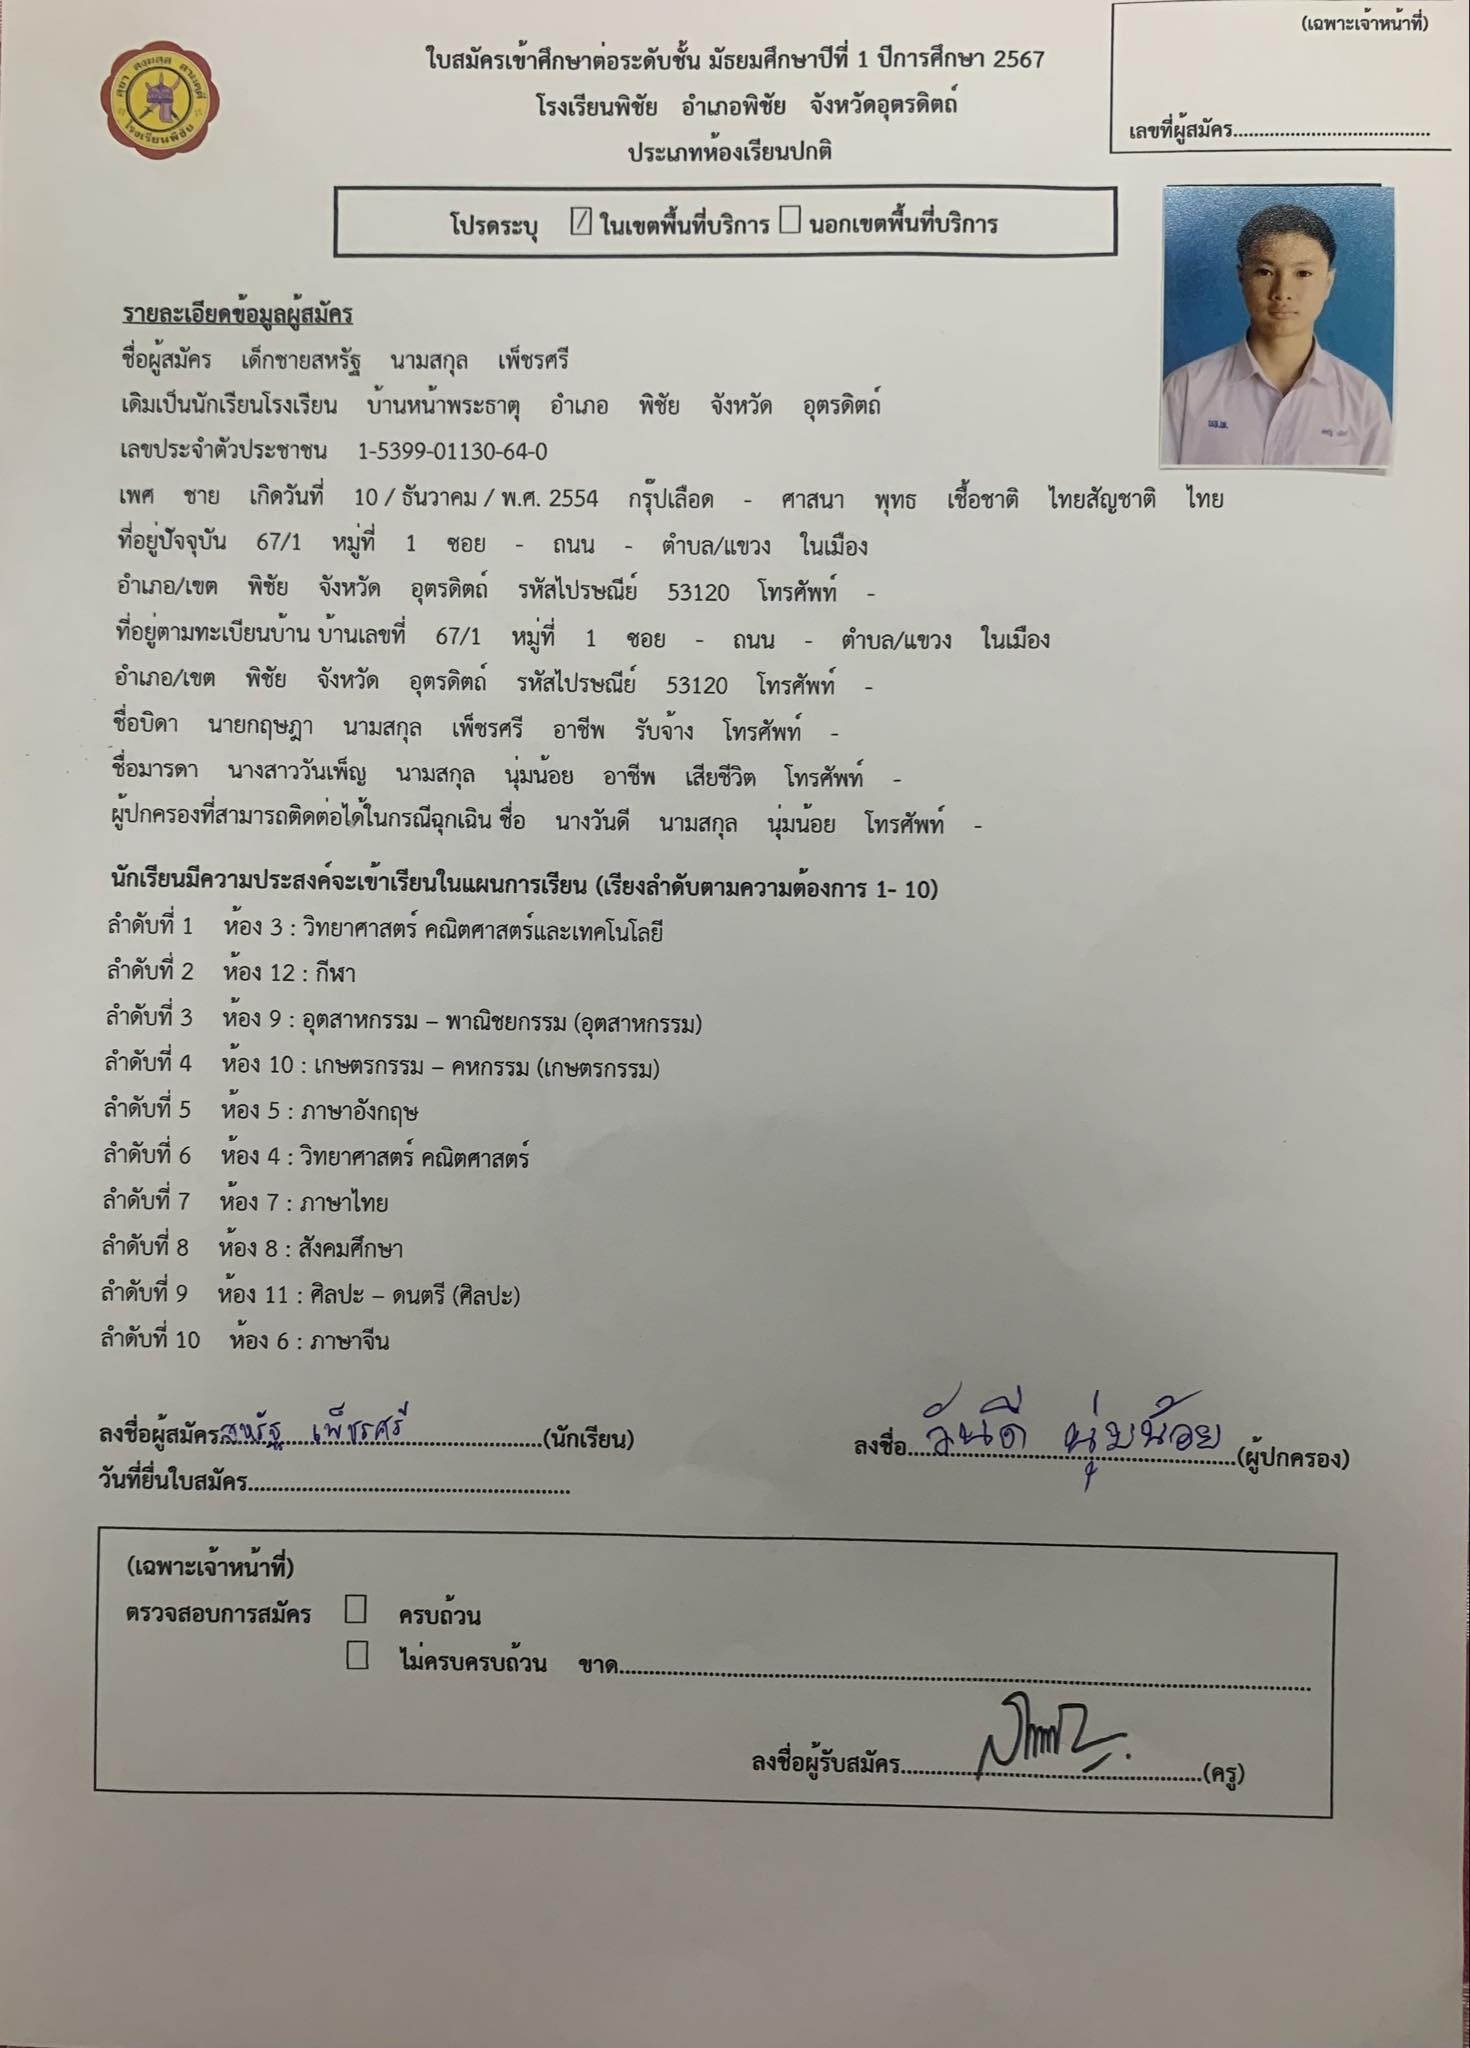 (เฉพาะเจ้าหน้าที่)
เลขที่ผู้สมัคร......................................
โรงเรียนพิชัย
ใบสมัครเข้าศึกษาต่อระดับชั้น มัธยมศึกษาปีที่ 1 ปีการศึกษา 2567
โรงเรียนพิชัย อำเภอพิชัย จังหวัดอุตรดิตถ์
ประเภทห้องเรียนปกติ
โปรดระบุ ☑ ในเขตพื้นที่บริการ ☐ นอกเขตพื้นที่บริการ
รายละเอียดข้อมูลผู้สมัคร
ชื่อผู้สมัคร เด็กชายสหรัฐ นามสกุล เพ็ชรศรี
เดิมเป็นนักเรียนโรงเรียน บ้านหน้าพระธาตุ อำเภอ พิชัย จังหวัด อุตรดิตถ์
เลขประจำตัวประชาชน 1-5399-01130-64-0
เพศ ชาย เกิดวันที่ 10 / ธันวาคม / พ.ศ. 2554 กรุ๊ปเลือด - ศาสนา พุทธ เชื้อชาติ ไทยสัญชาติ ไทย
ที่อยู่ปัจจุบัน 67/1 หมู่ที่ 1 ซอย - ถนน - ตำบล/แขวง ในเมือง
อำเภอ/เขต พิชัย จังหวัด อุตรดิตถ์ รหัสไปรษณีย์ 53120 โทรศัพท์ -
ที่อยู่ตามทะเบียนบ้าน บ้านเลขที่ 67/1 หมู่ที่ 1 ซอย - ถนน - ตำบล/แขวง ในเมือง
อำเภอ/เขต พิชัย จังหวัด อุตรดิตถ์ รหัสไปรษณีย์ 53120 โทรศัพท์ -
ชื่อบิดา นายกฤษฎา นามสกุล เพ็ชรศรี อาชีพ รับจ้าง โทรศัพท์ -
ชื่อมารดา นางสาววันเพ็ญ นามสกุล นุ่มน้อย อาชีพ เสียชีวิต โทรศัพท์ -
ผู้ปกครองที่สามารถติดต่อได้ในกรณีฉุกเฉิน ชื่อ นางวันดี นามสกุล นุ่มน้อย โทรศัพท์ -
นักเรียนมีความประสงค์จะเข้าเรียนในแผนการเรียน (เรียงลำดับตามความต้องการ 1- 10)
ลำดับที่ 1 ห้อง 3 : วิทยาศาสตร์ คณิตศาสตร์และเทคโนโลยี
ลำดับที่ 2 ห้อง 12 : กีฬา
ลำดับที่ 3 ห้อง 9 : อุตสาหกรรม – พาณิชยกรรม (อุตสาหกรรม)
ลำดับที่ 4 ห้อง 10 : เกษตรกรรม – คหกรรม (เกษตรกรรม)
ลำดับที่ 5 ห้อง 5 : ภาษาอังกฤษ
ลำดับที่ 6 ห้อง 4 : วิทยาศาสตร์ คณิตศาสตร์
ลำดับที่ 7 ห้อง 7 : ภาษาไทย
ลำดับที่ 8 ห้อง 8 : สังคมศึกษา
ลำดับที่ 9 ห้อง 11 : ศิลปะ – ดนตรี (ศิลปะ)
ลำดับที่ 10 ห้อง 6 : ภาษาจีน
ลงชื่อผู้สมัคร สหรัฐ เพ็ชรศรี (นักเรียน) ลงชื่อ วันดี นุ่มน้อย (ผู้ปกครอง)
วันที่ยื่นใบสมัคร......................................................
(เฉพาะเจ้าหน้าที่)
ตรวจสอบการสมัคร ☐ ครบถ้วน
☐ ไม่ครบครบถ้วน ขาด......................................................
ลงชื่อผู้รับสมัคร......................................................(ครู)